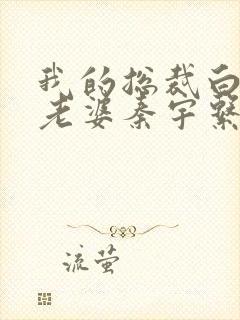 我的总裁白
老婆秦宇繫
流萤